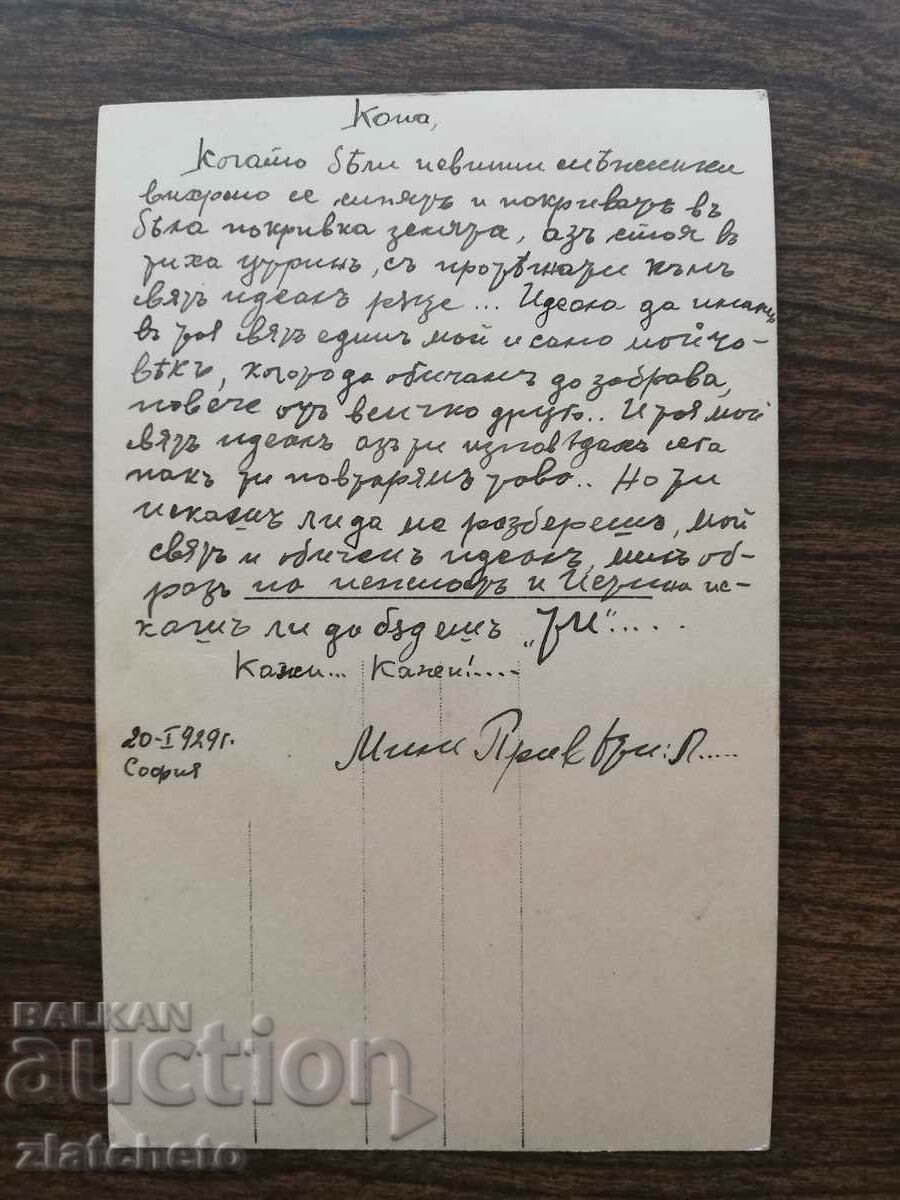 Коича,
Когато бѣли невинни снѣжинки
вихрено се сипятъ и покриватъ въ
бѣла покривка земята, азъ стоя въ
тиха утринь, съ протѣгнати къмъ
святъ идеалъ ръце... Идеала да имамъ
въ тоя святъ единъ мой и само мой чо-
вѣкъ, когото да обичамъ до забрава,
повече отъ всичко друго.. И тоя мой
святъ идеалъ азъ ти изповѣдахъ сега
пакъ ти повтарямъ това.. Но ти
искашъ ли да ме разберешъ, мой
святъ и обиченъ идеалъ, милъ об-
разъ на и ис-
кашъ ли да бѫдешъ "Ти".....
Кажи... Кажи!....
20-I 929г.
София
BALKAN
auction
zlatcheto